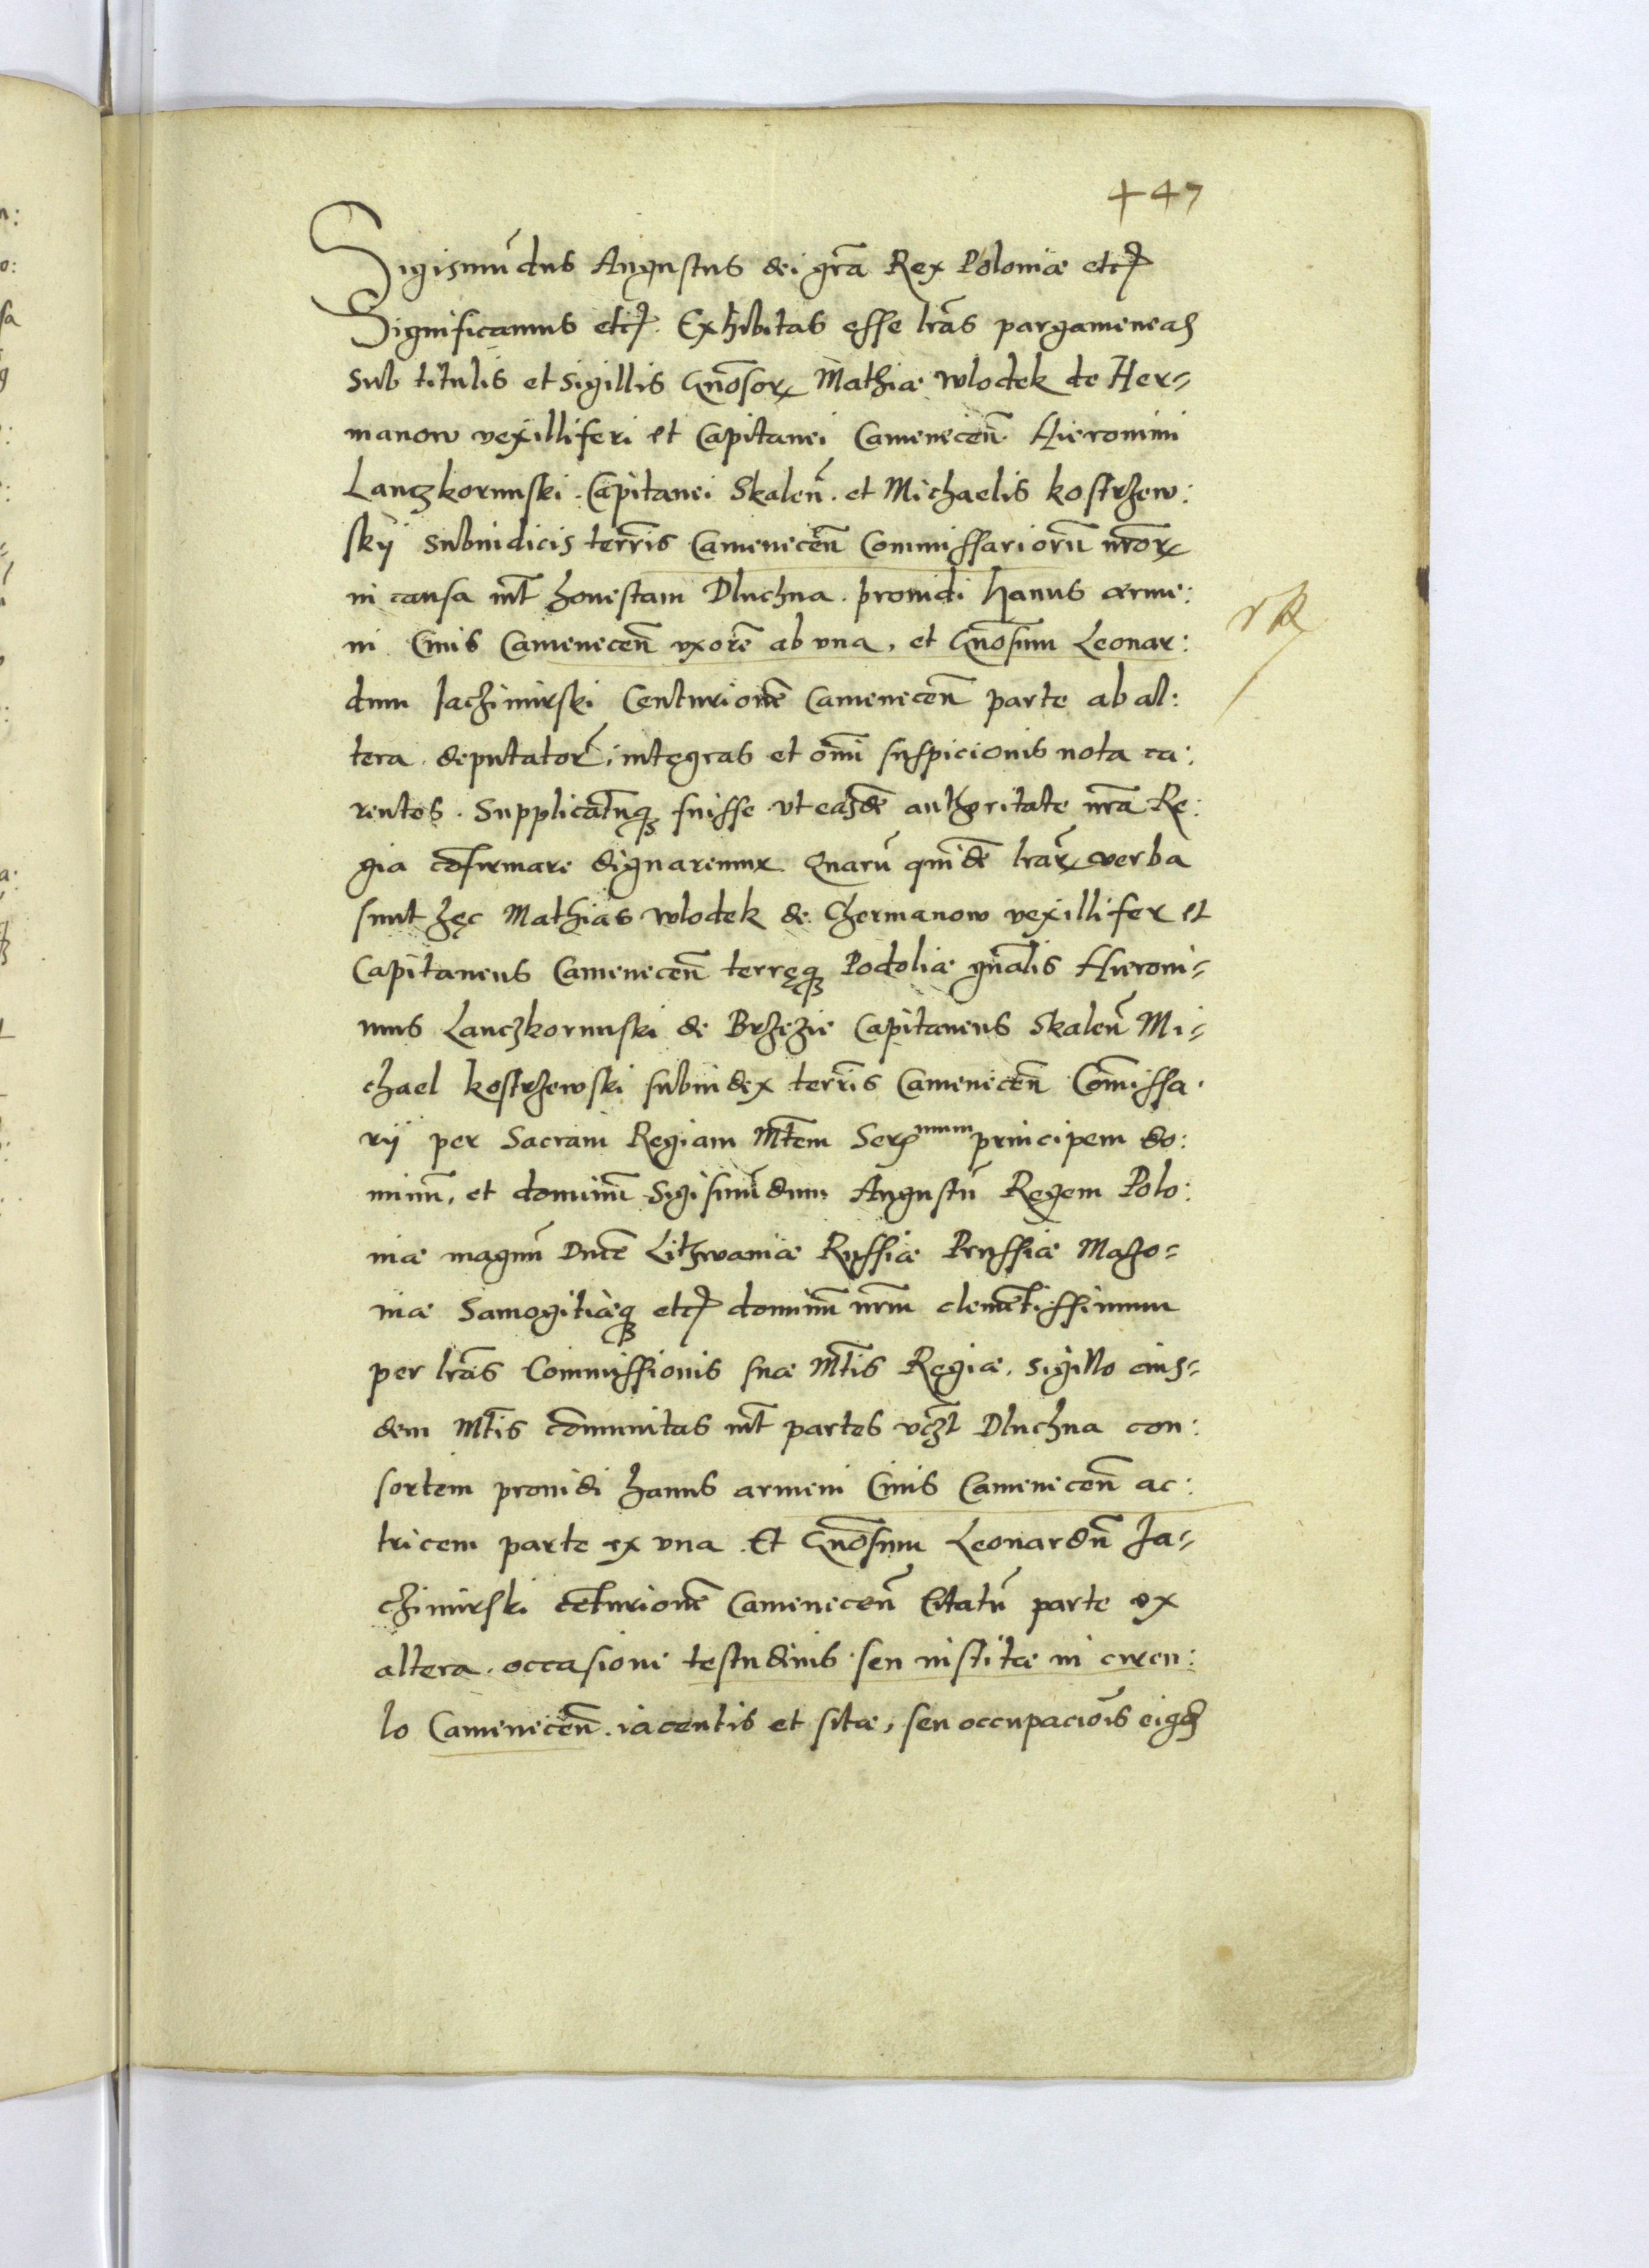 +47
Sigismūdus Augustus dei gr̃a Rex Poloniæ etc
Significamus etc. Exhibitas esse lr̃as pargameneas
sub titulis et sigillis Gñosorꝝ Mathiæ wlodek de Her=
manow vexilliferi et Capitanei Camenecen̄ Hieronimi
Lanczkorunski . Capitanei Skalen̄ . et Michaelis kostrzew:
skij subiudicis terr̃is Camenecen̄ Commissariorū nr̃orꝝ
in causa int̃ honestam Dluchna . prouidi Hanus arme:
ni Ciuis Camenecen̄ vxorē ab vna, et Gñosum Leonar:
dum Jachimirski Centurionē Camenecen̄ parte ab al:
tera . deputator̃, integras et om̄i suspicionis nota ca:
rentes . Supplicatūqꝫ fuisse vt easdē authoritate nr̃a Re:
gia cōfirmare dignaremur Quarū quidē lr̃arꝝ verba
sunt hęc Mathias wlodek de Chermanow vexillifer et
Capitaneus Camenecen̄ terręqꝫ Podoliæ gn̄alis Hieroni=
mus Lanczkorunski de Brzezie Capitaneus Skalen̄ Mi=
chael kostrzewski subiudex terr̃is Camenecen̄ Com̄issa.
rij per Sacram Regiam Mt̃em Serᵐᵘᵐ principem do:
minū, et dominū Sigismūdum Augustū Regem Polo:
niæ magnū Ducē Lithwaniæ Russiæ Prussiæ Maso=
uiæ Samogitiæqꝫ etc dominū nr̃m clemētissimum
per lr̃as Commissionis suæ Mt̃is Regiæ . sigillo eius=
dem Mt̃is cōmunitas int̃ partes vcꝫt Dluchna con:
sortem prouidi hanus armeni Ciuis Camenecen̄ ac:
tricem parte ex vna . Et Gñosum Leonardū Ja=
chimirski cēturionē Camenecen̄ Citatū parte ex
altera . occasione testudinis seu institæ in circu:
lo Camenecen̄ . iacentis et sitæ, seu occupaciōis